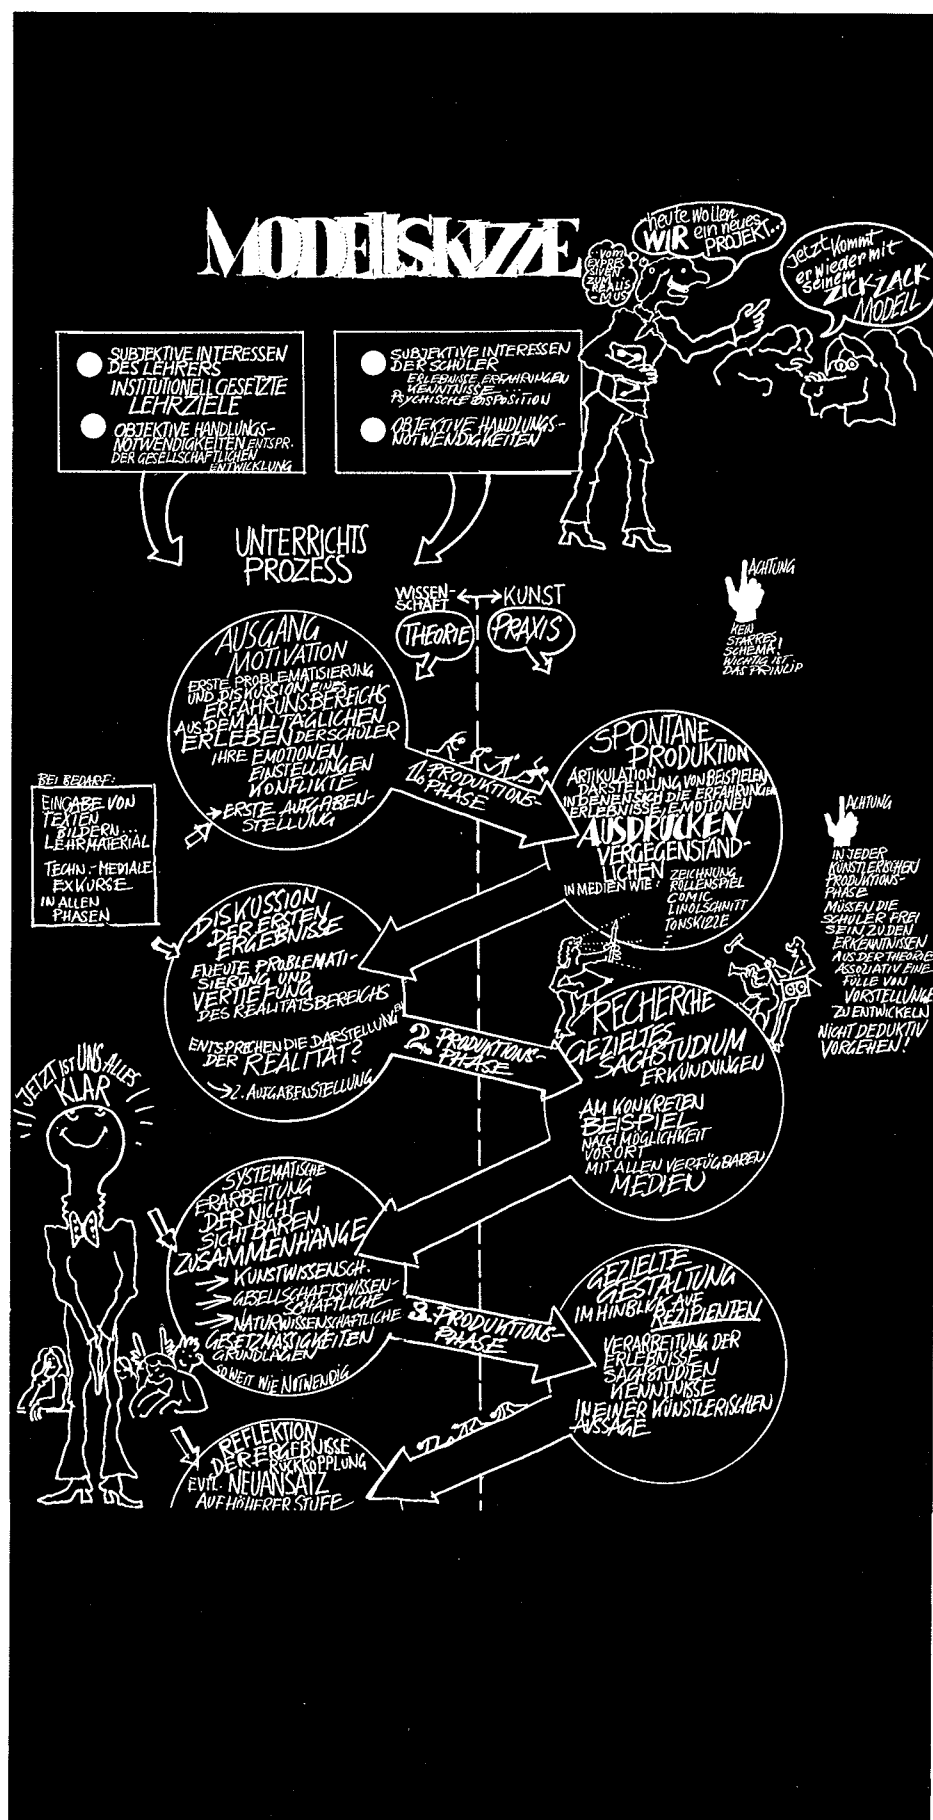 MODELLSKIZZE
heute wollen
WIR ein neues
PROJEKT...
...VOM
EXPRES
SIVEN
ZUM
REALIS
-MUS
jetzt kommt
er wieder mit
seinem
ZICKZACK
MODELL
SUBJEKTIVE INTERESSEN
DES LEHRERS
INSTITUTIONELL GESETZTE
LEHRZIELE
OBJEKTIVE HANDLUNGS-
NOTWENDIGKEITEN ENTSPR.
DER GESELLSCHAFTLICHEN
ENTWICKLUNG
SUBJEKTIVE INTERESSEN
DER SCHÜLER
ERLEBNISSE, ERFAHRUNGEN
KENNTNISSE...
PSYCHISCHE DISPOSITION
OBJEKTIVE HANDLUNGS-
NOTWENDIGKEITEN
UNTERRICHTS
PROZESS
WISSEN-
SCHAFT
KUNST
THEORIE
PRAXIS
ACHTUNG
KEIN
STARRES
SCHEMA!
WICHTIG IST
DAS PRINCIP
AUSGANG
MOTIVATION
ERSTE PROBLEMATISIERUNG
UND DISKUSSION EINES
ERFAHRUNSBEREICHS
AUS DEM ALLTÄGLICHEN
ERLEBEN DER SCHÜLER
IHRE EMOTIONEN
EINSTELLUNGEN
KONFLIKTE
ERSTE AUFGABEN-
STELLUNG
1. PRODUKTIONS-
PHASE
SPONTANE
PRODUKTION
ARTIKULATION
DARSTELLUNG VON BEISPIELEN
IN DENEN SICH DIE ERFAHRUNGEN
ERLEBNISSE, EMOTIONEN
AUSDRÜCKEN
VERGEGENSTÄND-
LICHEN
IN MEDIEN WIE: ZEICHNUNG
ROLLENSPIEL
COMIC
LINOLSCHNITT
TONSKIZZE
BEI BEDARF:
EINGABE VON
TEXTEN
BILDERN...
LEHRMATERIAL
TECHN.-MEDIALE
EXKURSE
IN ALLEN
PHASEN
ACHTUNG
IN JEDER
KÜNSTLERISCHEN
PRODUKTIONS-
PHASE
MÜSSEN DIE
SCHÜLER FREI
SEIN, ZU DEN
ERKENNTNISSEN
AUS DER THEORIE
ASSOZIATIV EINE
FÜLLE VON
VORSTELLUNGE
ZU ENTWICKELN
NICHT DEDUKTIV
VORGEHEN!
DISKUSSION
DER ERSTEN
ERGEBNISSE
ENEUTE PROBLEMATI-
SIERUNG UND
VERTIEFUNG
DES REALITÄTSBEREICHS
ENTSPRECHEN DIE DARSTELLUNGEN
DER REALITÄT?
2. AUFGABENSTELLUNG
2. PRODUKTIONS-
PHASE
RECHERCHE
GEZIELTES
SACHSTUDIUM
ERKUNDUNGEN
AM KONKRETEN
BEISPIEL
NACH MÖGLICHKEIT
VOR ORT
MIT ALLEN VERFÜGBAREN
MEDIEN
JETZT IST UNS ALLES
KLAR
SYSTEMATISCHE
ERARBEITUNG
DER NICHT
SICHTBAREN
ZUSAMMENHÄNGE
KUNSTWISSENSCH.
GESELLSCHAFTSWISSEN-
SCHAFTLICHE
NATURWISSENSCHAFTLICHE
GESETZMÄSSIGKEITEN
GRUNDLAGEN
SO WEIT WIE NOTWENDIG
3. PRODUKTIONS-
PHASE
GEZIELTE
GESTALTUNG
IM HINBLICK AUF
REZIPIENTEN
VERARBEITUNG DER
ERLEBNISSE
SACHSTUDIEN
KENNTNISSE
IN EINER KÜNSTLERISCHEN
AUSSAGE
REFLEKTION
DER ERGEBNISSE
RÜCKKOPPLUNG
EVTL. NEUANSATZ
AUF HÖHERER STUFE